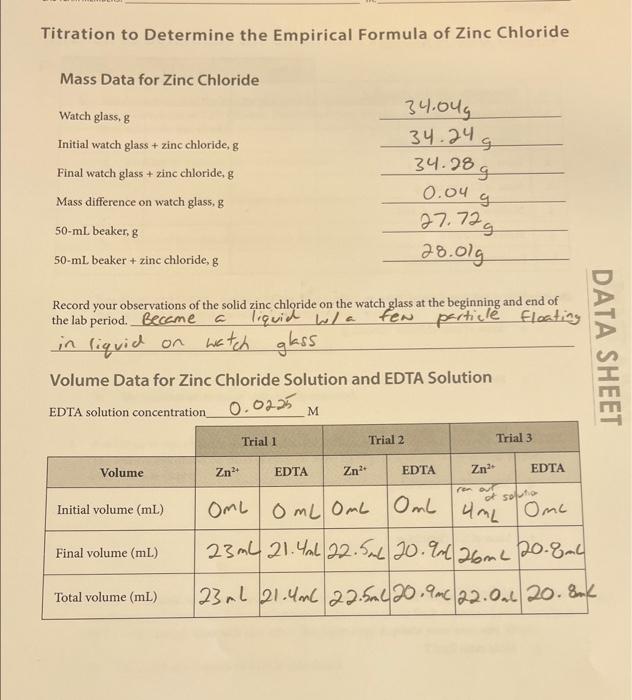 Titration to Determine the Empirical Formula of Zinc Chloride
Mass Data for Zinc Chloride
Watch glass, g 34.04g
Initial watch glass + zinc chloride, g 34.24 g
Final watch glass + zinc chloride, g 34.28 g
Mass difference on watch glass, g 0.04 g
50-mL beaker, g 27.72g
50-mL beaker + zinc chloride, g 28.01g
DATA SHEET
Record your observations of the solid zinc chloride on the watch glass at the beginning and end of
the lab period. Became a liquid w/ a few particle floating
in liquid on watch glass
Volume Data for Zinc Chloride Solution and EDTA Solution
EDTA solution concentration 0.0225 M
Trial 1 Trial 2 Trial 3
Volume Zn²⁺ EDTA Zn²⁺ EDTA Zn²⁺ EDTA
ran out of solution
Initial volume (mL) 0mL 0 mL 0mL 0mL 4mL 0mL
Final volume (mL) 23mL 21.4mL 22.5mL 20.9mL 26mL 20.8mL
Total volume (mL) 23mL 21.4mL 22.5mL 20.9mL 22.0mL 20.8mL